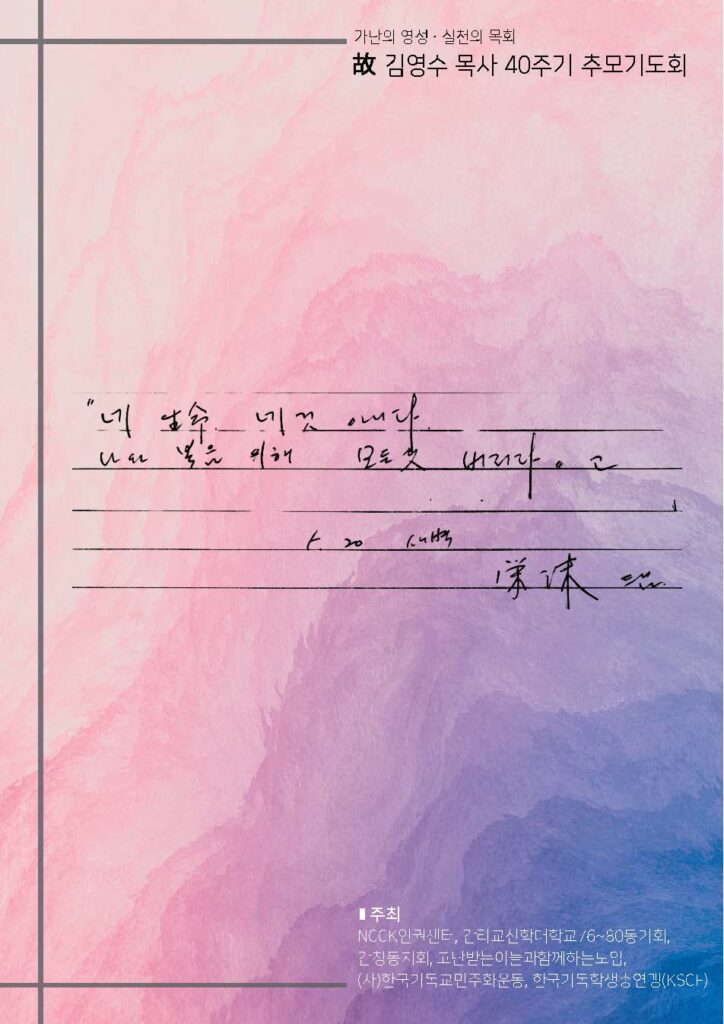 가난의 영성·실천의 목회
故 김영수 목사 40주기 추모기도회
"네 生命 네것 아니다.
나와 복음 위해 모든것 버리라。고
5. 20 새벽
▮주최
NCCK인권센터, 감리교신학대학교76~80동기회,
감청동지회, 고난받는이들과함께하는모임,
(사)한국기독교민주화운동, 한국기독학생총연맹(KSCF)